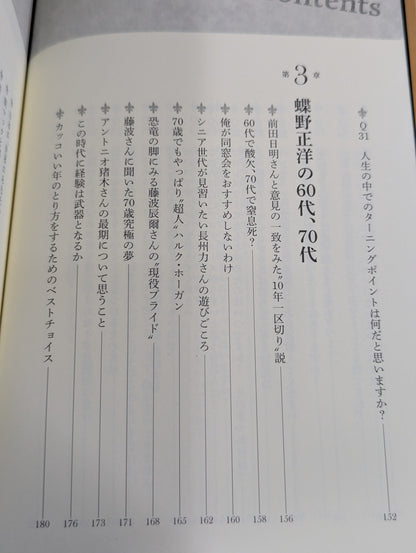 Contents
Q31 人生の中でのターニングポイントは何だと思いますか? 152
第3章 蝶野正洋の60代、70代
前田日明さんと意見の一致をみた“10年一区切り”説 156
60代で酸欠、70代で窒息死? 158
俺が同窓会をおすすめしないわけ 160
シニア世代が見習いたい長州力さんの遊びごころ 162
70歳でもやっぱり“超人”ハルク・ホーガン 165
恐竜の脚にみる藤波辰爾さんの“現役プライド” 168
藤波さんに聞いた70歳究極の夢 171
アントニオ猪木さんの最期について思うこと 173
この時代に経験は武器となるか 176
カッコいい年のとり方をするためのベストチョイス 180